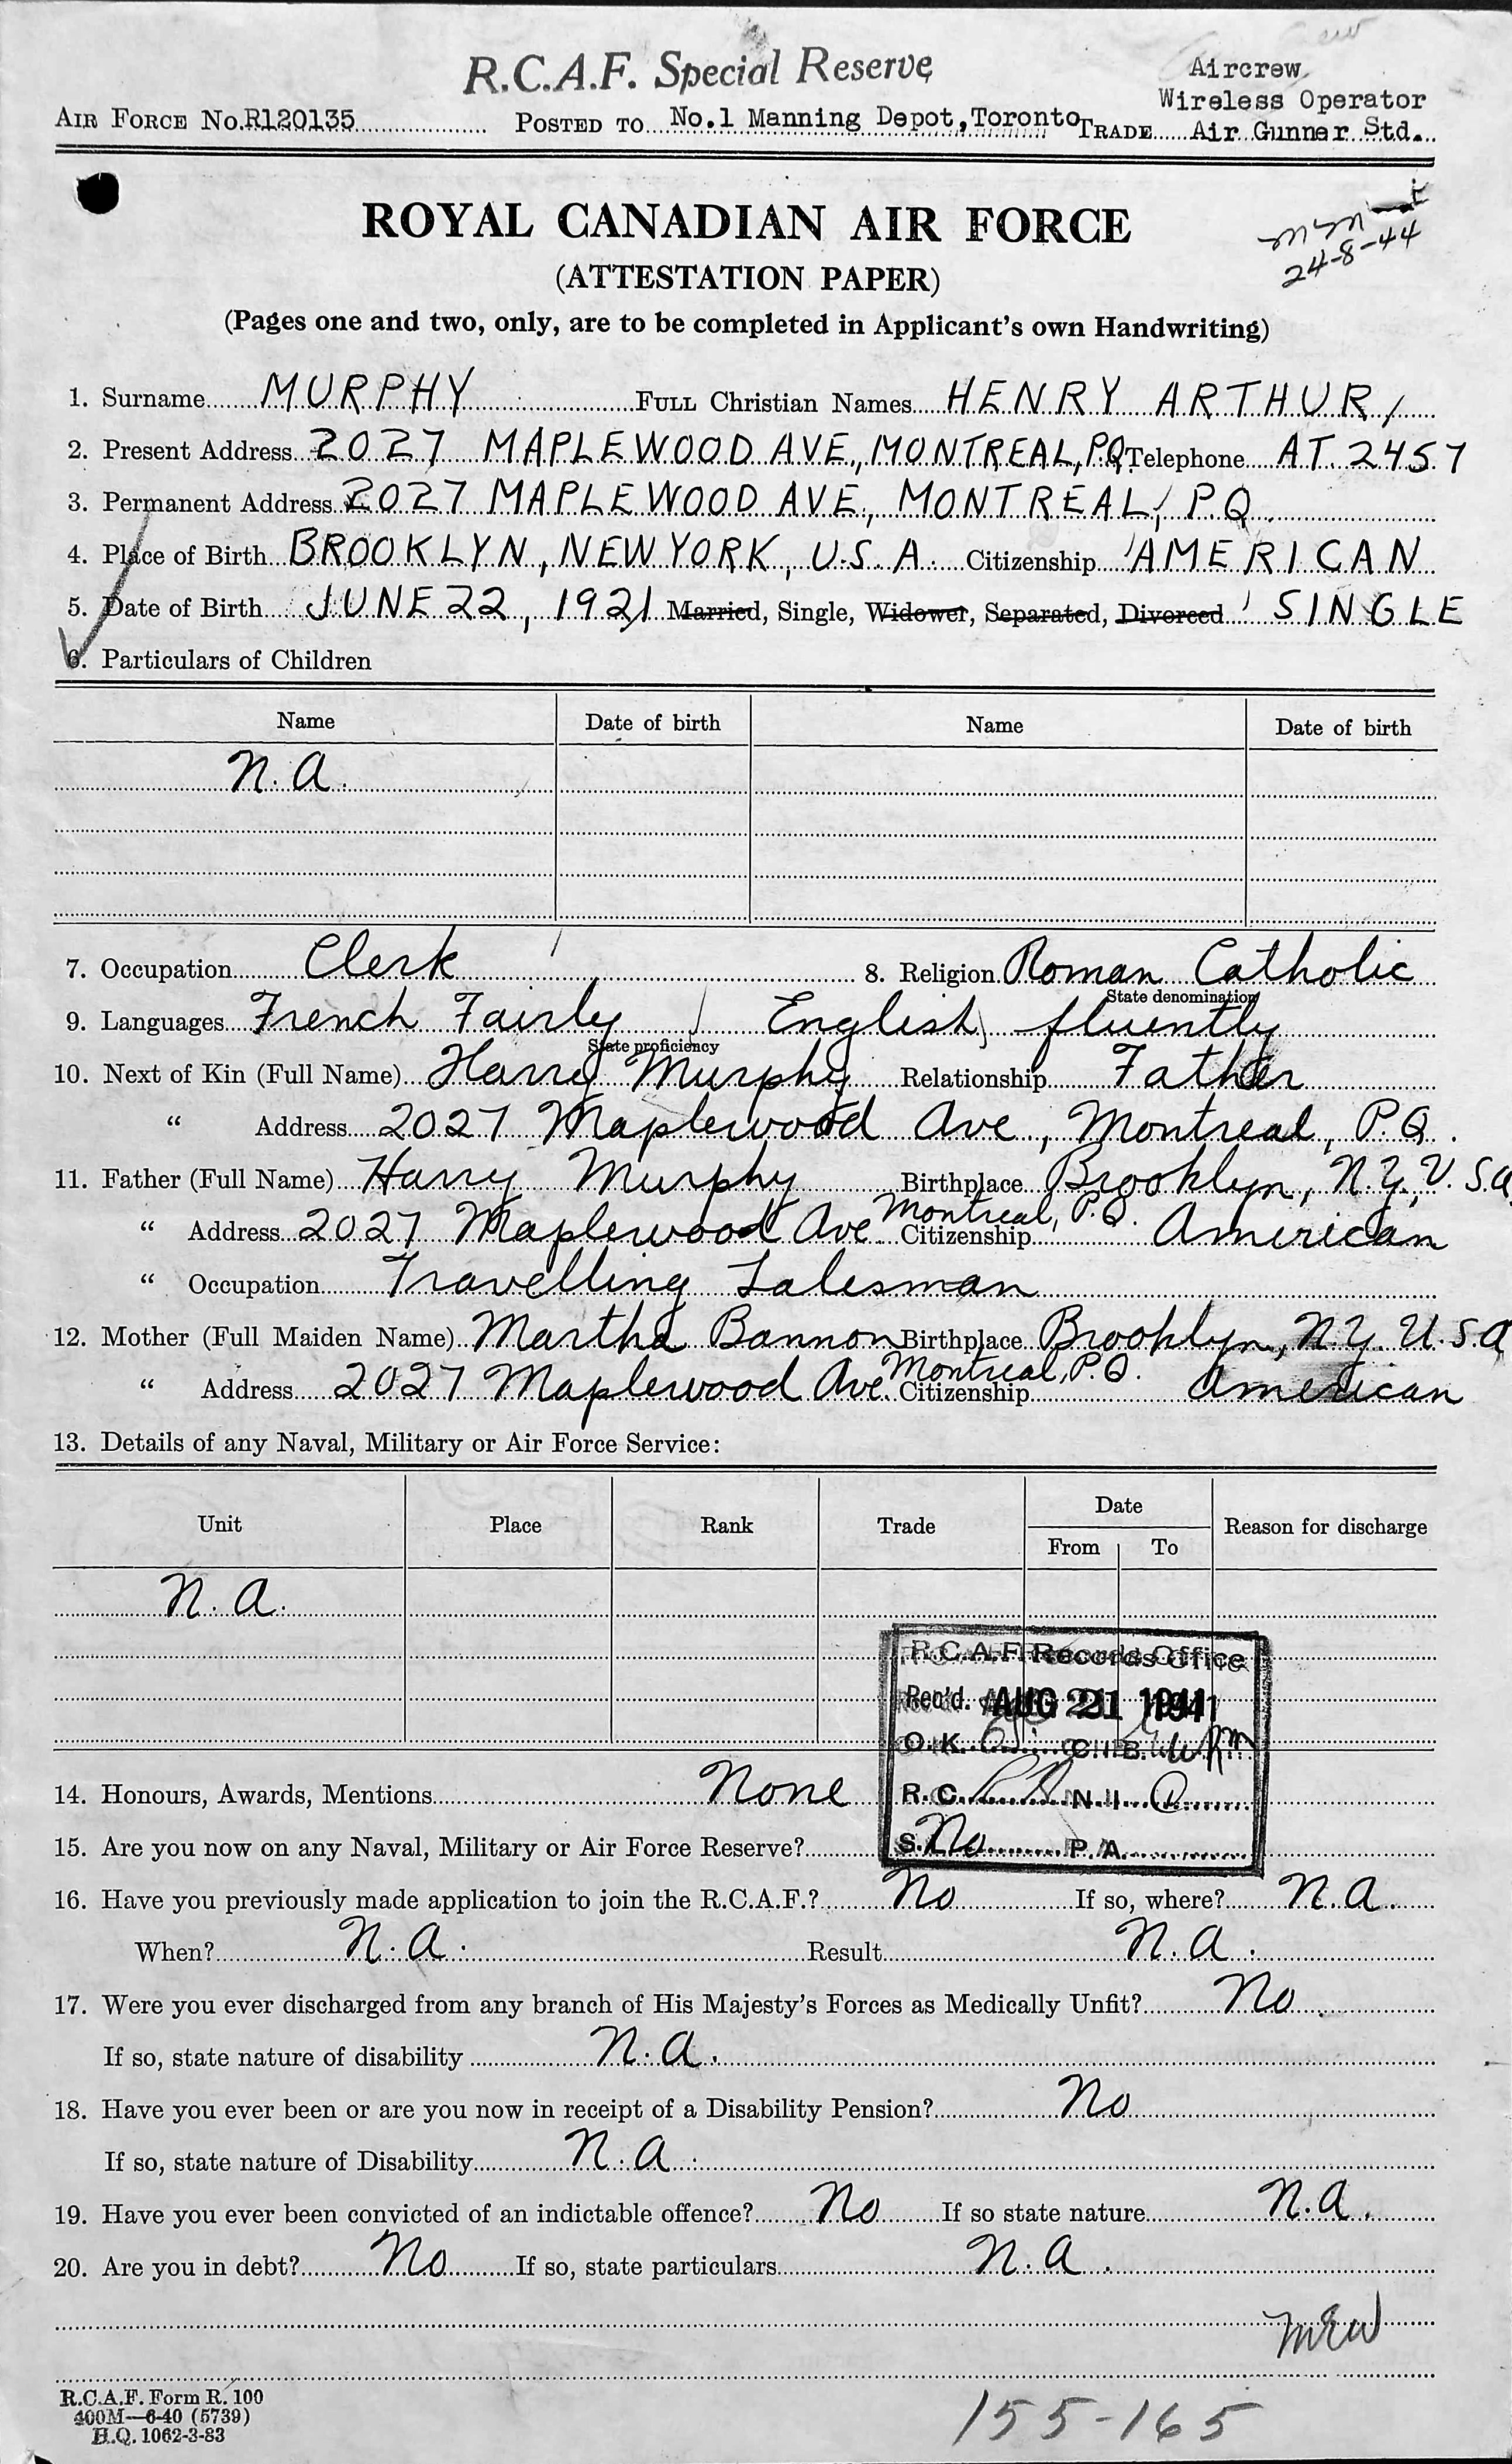 R.C.A.F. Special Reserve
Aircrew
Wireless Operator
AIR FORCE No. R120135 POSTED TO No.1 Manning Depot, Toronto TRADE Air Gunner Std.
ROYAL CANADIAN AIR FORCE
24-8-44
(ATTESTATION PAPER)
(Pages one and two, only, are to be completed in Applicant's own Handwriting)
1. Surname MURPHY FULL Christian Names HENRY ARTHUR
2. Present Address 2027 MAPLEWOOD AVE., MONTREAL, P.Q Telephone AT. 2457
3. Permanent Address 2027 MAPLEWOOD AVE., MONTREAL, P.Q.
4. Place of Birth BROOKLYN, NEW YORK, U.S.A. Citizenship AMERICAN
5. Date of Birth JUNE 22, 1921 Married, Single, Widower, Separated, Divorced SINGLE
6. Particulars of Children
Name Date of birth Name Date of birth
N.A.
7. Occupation Clerk 8. Religion Roman Catholic
State denomination
9. Languages French Fairly English, fluently
State proficiency
10. Next of Kin (Full Name) Harry Murphy Relationship Father
" Address 2027 Maplewood Ave., Montreal, P.Q.
11. Father (Full Name) Harry Murphy Birthplace Brooklyn, N.Y., U.S.A
" Address 2027 Maplewood Ave. Montreal, P.Q. Citizenship American
" Occupation Travelling Salesman
12. Mother (Full Maiden Name) Martha Bannon Birthplace Brooklyn, N.Y. U.S.A
" Address 2027 Maplewood Ave. Montreal, P.Q. Citizenship American
13. Details of any Naval, Military or Air Force Service:
Unit Place Rank Trade Date From To Reason for discharge
N.A.
R.C.A.F. Records Office
Rec'd. AUG 21 1941
O.K. C.I.B.
R.C. N.I.
S. P.A.
14. Honours, Awards, Mentions None
15. Are you now on any Naval, Military or Air Force Reserve? No
16. Have you previously made application to join the R.C.A.F.? No If so, where? N.A.
When? N.A. Result N.A.
17. Were you ever discharged from any branch of His Majesty's Forces as Medically Unfit? No.
If so, state nature of disability N.A.
18. Have you ever been or are you now in receipt of a Disability Pension? No
If so, state nature of Disability N.A.
19. Have you ever been convicted of an indictable offence? No If so state nature N.A.
20. Are you in debt? No If so, state particulars N.A.
MEW
R.C.A.F. Form R. 100
400M—6-40 (5739)
H.Q. 1062-3-83
155-165